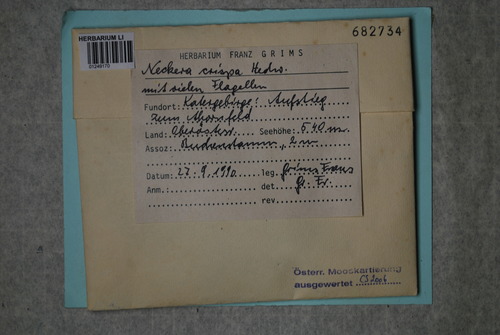 HERBARIUM LI
682734
HERBARIUM FRANZ GRIMS
Neckera crispa Hedw.
mit vielen Flagellen
Fundort: Katergebirge: Aufstieg
zum Ahornfeld
Land: Oberösterr. Seehöhe: 540 m
Assoz: 2 m
Datum: 27.9.1990 leg. Grims Franz
Anm.: det. Gr. Fr.
rev.
Österr. Mooskartierung
ausgewertet